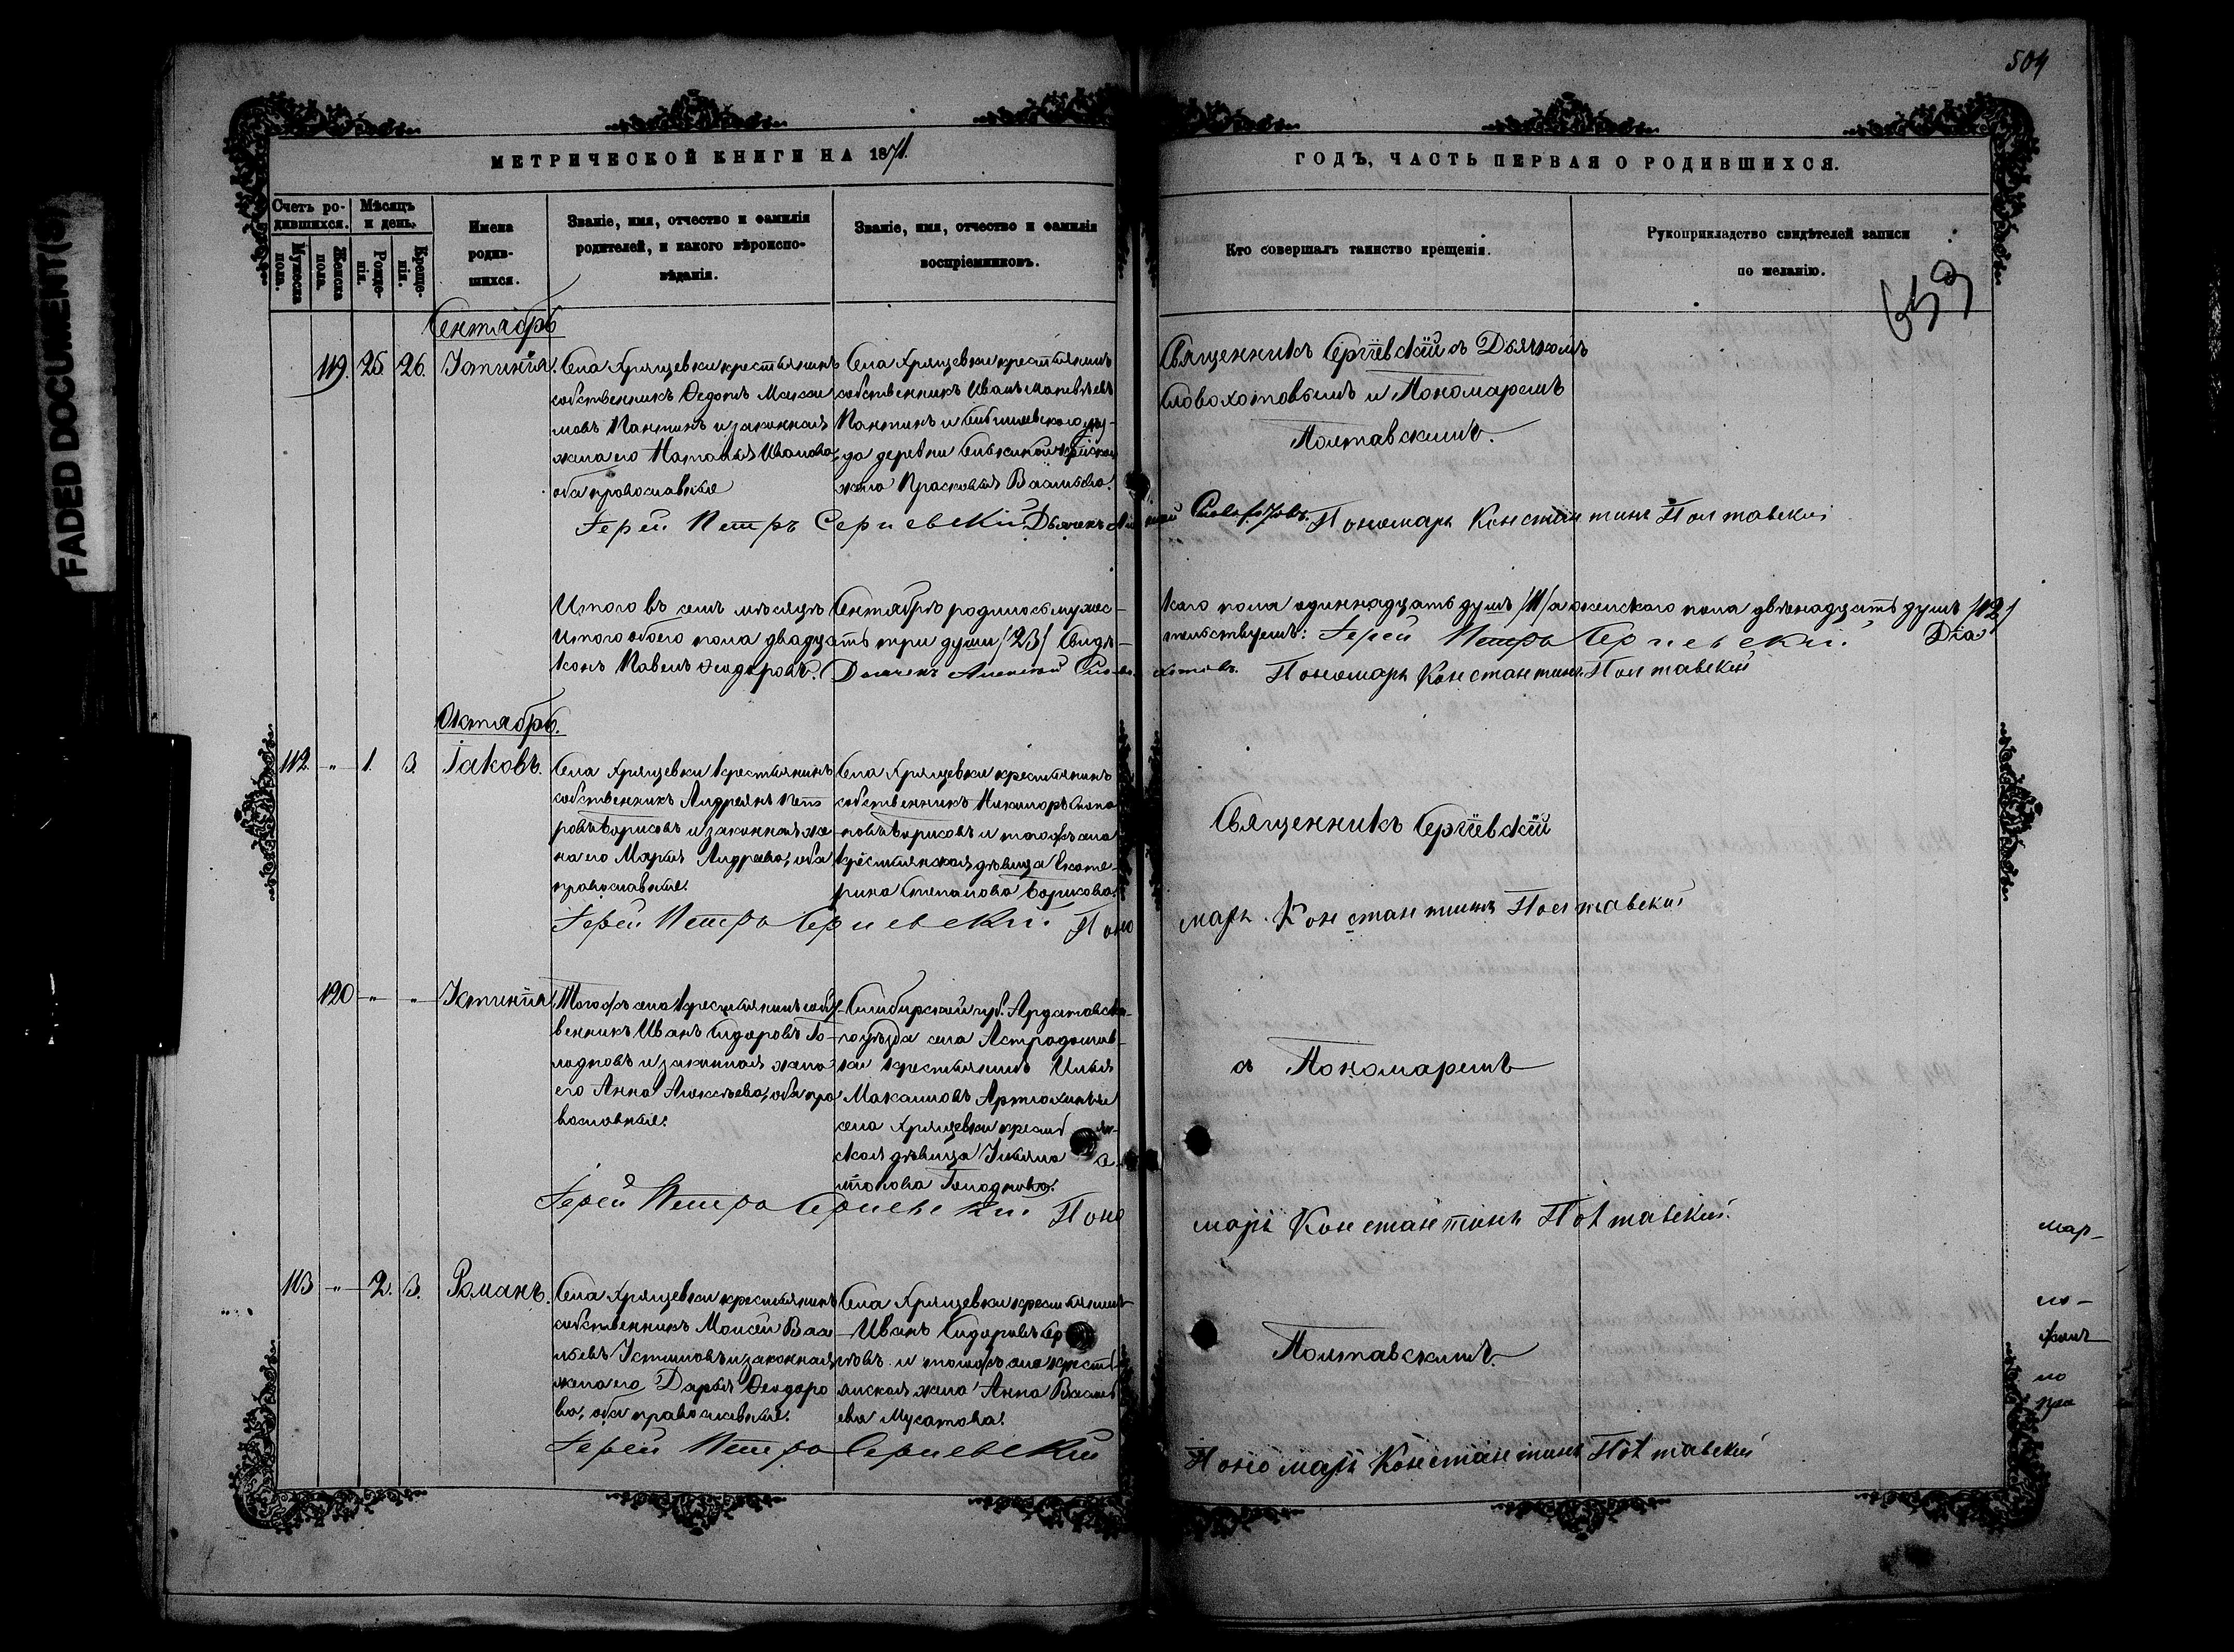 504
FADED DOCUMENT(S)
МЕТРИЧЕСКОЙ КНИГИ НА 1871.
ГОДЪ, ЧАСТЬ ПЕРВАЯ О РОДИВШИХСЯ.
Счетъ ро-
дившихся.
Мужеска
пола.
Женска
пола.
Мѣсяцъ
и день.
Рожде-
нія.
Креще-
нія.
Имена
родив-
шихся.
Званіе, имя, отчество и фамилія
родителей, и какого вѣроиспо-
вѣданія.
Званіе, имя, отчество и фамилія
воспріемниковъ.
Кто совершалъ таинство крещенія.
Рукоприкладство свидѣтелей записи
по желанію.
659
Сентябрь
119. 25. 26.
Села Хрящевки крестьянинъ
собственникъ Федотъ Макси
мовъ Пантинъ и законная
жена его Наталья Иванова,
оба православные
Села Хрящевки крестьянинъ
собственникъ Иванъ Матвѣевъ
Пантинъ и
да деревни
жена Прасковья Васильева.
Священникъ Сергіевскій съ Дьячкомъ
Словохотовымъ и Пономаремъ
Полтавскимъ.
Іерей Петръ Сергіевскій Дьячекъ
Пономарь Константинъ Полтавскій
Итого въ семъ мѣсяцѣ Сентябрѣ родилось мужес-
каго пола одиннадцать душъ /11/ а женскаго пола двѣнадцать душъ /12/
Итого обоего пола двадцать три души /23/ Свидѣ-
тельствуемъ: Іерей Петръ Сергіевскій. Діа
конъ Павелъ Феодоровъ. Дьячекъ Алексей Словохотовъ. Пономарь Константинъ Полтавскій
Октябрь.
112. " 1. 3. Іаковъ.
Села Хрящевки крестьянинъ
собственникъ Андреянъ Пет
ровъ Борисовъ и законная же
на его Марья Андреева, оба
православные.
Села Хрящевки крестьянинъ
собственникъ Никифоръ
Борисовъ и тогожъ села
крестьянская дѣвица Екате-
рина Степанова Борисова.
Священникъ Сергіевскій
Іерей Петръ Сергіевскій. Поно
марь Константинъ Полтавскій
120 " " Устинія
Тогожъ села крестьянинъ собст
венникъ Иванъ Сидоровъ Го-
лодновъ и законная жена
его Анна Алексѣева, оба пра
вославные.
Симбирской губ. Ардатовска-
го уѣзда села Астрадамов-
ки крестьянинъ Илья
Максимовъ Артюхинъ и
села Хрящевки крестьян-
ская дѣвица Ульяна
Голоднова.
съ Пономаремъ
Іерей Петръ Сергіевскій Поно
марь Константинъ Полтавскій.
113 " 2. 3. Романъ.
Села Хрящевки крестьянинъ
собственникъ Моисей Васи
льевъ Устиновъ и законная
жена его Дарья Феодоро
ва, оба православные.
Села Хрящевки крестьянинъ
Иванъ Сидоровъ
и тогожъ села крестьян
янская жена Анна Василь
ева Мусатова.
Полтавскимъ.
Іерей Петръ Сергіевскій
Пономарь Константинъ Полтавскій
мар-